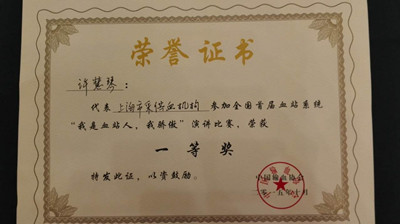 荣誉证书
许慧琴：
代表 上海市采供血机构 参加全国首届血站系统
“我是血站人，我骄傲”演讲比赛，荣获
一等奖
特发此证，以资鼓励。
中国输血协会